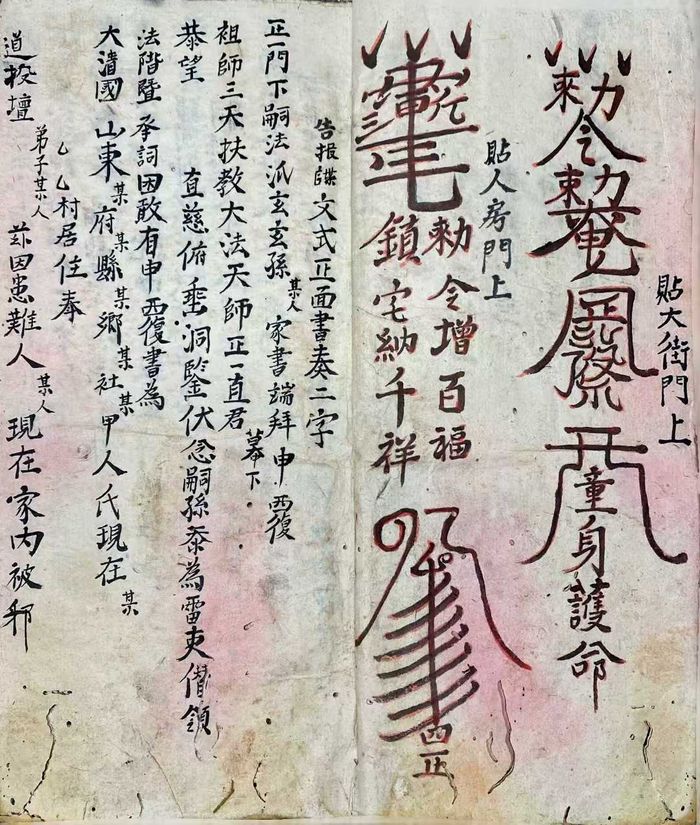 貼大街門上
勅令
童身護命
貼人房門上
勅令增百福
鎮宅納千祥
四正
告报牒文式正面書奏二字
正一門下嗣法派玄玄孫某人家書端拜申西復
祖師三天扶教大法天師正一直君幕下
恭望
直慈俯垂洞鑒伏念嗣孫忝為雷吏僭領
法階暨承詞因敢有申西復書為
大清國山東某府某縣某鄉某社某甲人氏現在某
乙乙村居住奉
道投壇弟子某人茲因患難人某人現在家内被邪